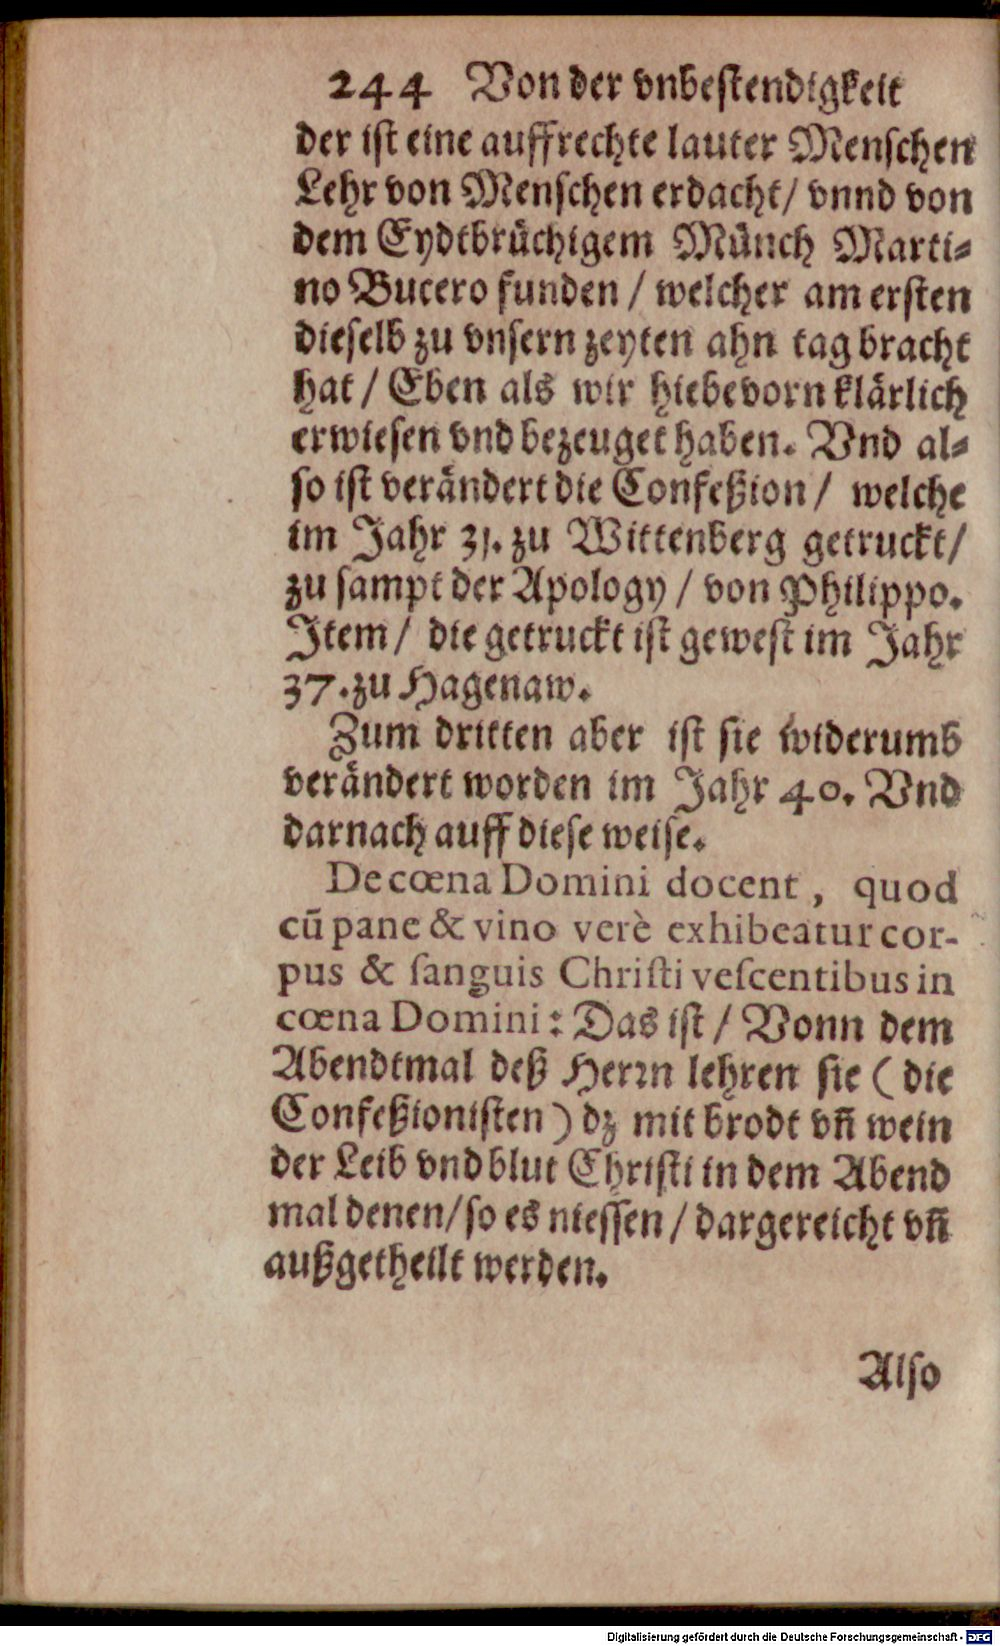 244 Von der vnbestendigkeit
der ist eine auffrechte lauter Menschen
Lehr von Menschen erdacht/ vnnd von
dem Eydtbrüchigem Münch Marti-
no Bucero funden / welcher am ersten
dieselb zu vnsern zeyten ahn tag bracht
hat / Eben als wir hiebevorn klärlich
erwiesen vnd bezeuget haben. Vnd al-
so ist verändert die Confeßion / welche
im Jahr 31. zu Wittenberg getruckt/
zu sampt der Apology / von Philippo.
Item / die getruckt ist gewest im Jahr
37. zu Hagenaw.
Zum dritten aber ist sie widerumb
verändert worden im Jahr 40. Vnd
darnach auff diese weise.
De cœna Domini docent, quod
cū pane & vino verè exhibeatur cor-
pus & sanguis Christi vescentibus in
cœna Domini: Das ist / Vonn dem
Abendtmal deß Herrn lehren sie (die
Confeßionisten) dz mit brodt vñ wein
der Leib vnd blut Christi in dem Abend
mal denen/ so es niessen / dargereicht vñ
außgetheilt werden.
Also
Digitalisierung gefördert durch die Deutsche Forschungsgemeinschaft - DFG